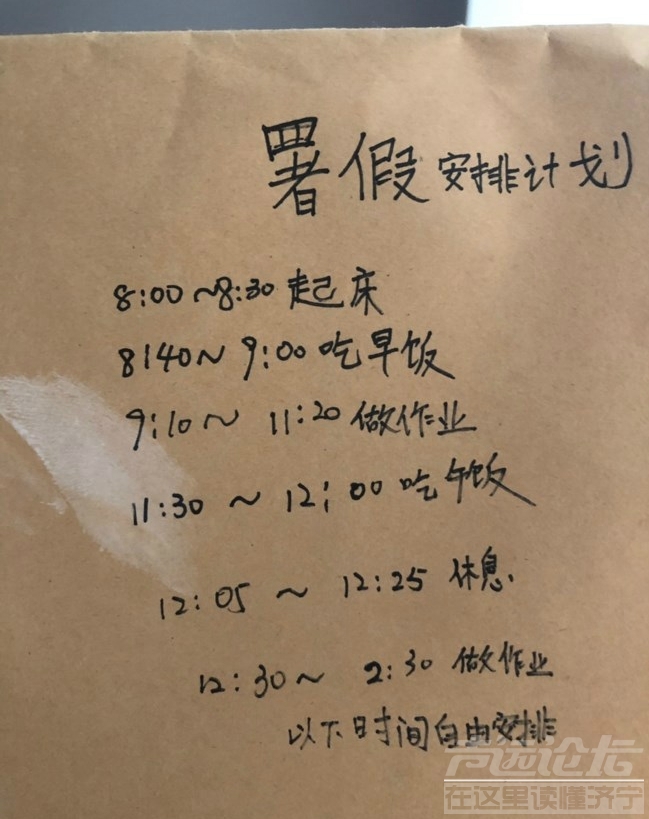 暑假安排计划
8:00~8:30起床
8:40~9:00吃早饭
9:10~11:20做作业
11:30~12:00吃午饭
12:05~12:25休息.
12:30~2:30做作业
以下时间自由安排
声远论坛
在这里读懂济宁